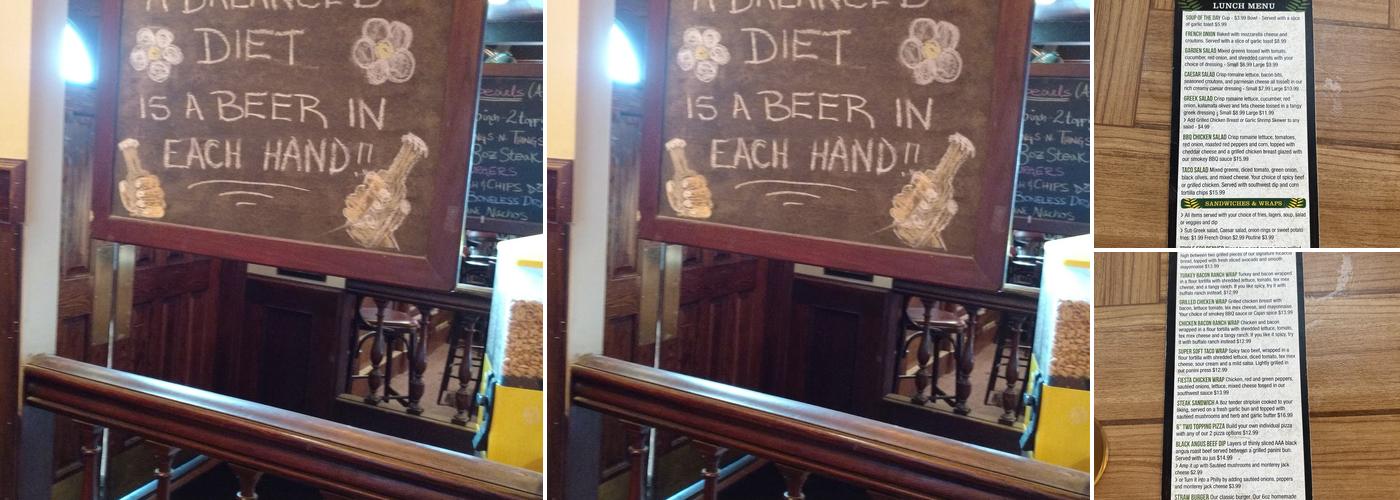 A BALANCED
DIET
IS A BEER IN
EACH HAND!!
Specials
2 topp
Steak
& CHIPS
Nachos
A BALANCED
DIET
IS A BEER IN
EACH HAND!!
Specials
2 topp
Steak
& CHIPS
Nachos
LUNCH MENU
SOUP OF THE DAY Cup - $3.99 Bowl - Served with a slice
of garlic toast $5.99
FRENCH ONION Baked with mozzarella cheese and
croutons. Served with a slice of garlic toast $8.99
GARDEN SALAD Mixed greens tossed with tomato,
cucumber, red onion, and shredded carrots with your
choice of dressing - Small $6.99 Large $9.99
CAESAR SALAD Crisp romaine lettuce, bacon bits,
seasoned croutons, and parmesan cheese all tossed in our
rich creamy caesar dressing - Small $7.99 Large $10.99
GREEK SALAD Crisp romaine lettuce, cucumber, red
onion, kalamata olives and feta cheese tossed in a tangy
greek dressing Small $8.99 Large $11.99
> Add Grilled Chicken Breast or Garlic Shrimp Skewer to any
salad - $4.99
BBQ CHICKEN SALAD Crisp romaine lettuce, tomatoes,
red onion, roasted red peppers and corn, topped with
cheddar cheese and a grilled chicken breast glazed with
our smokey BBQ sauce $15.99
TACO SALAD Mixed greens, diced tomato, green onion,
black olives, and mixed cheese. Your choice of spicy beef
or grilled chicken. Served with southwest dip and corn
tortilla chips $15.99
SANDWICHES & WRAPS
> All items served with your choice of fries, soup, salad
or veggies and dip
> Sub Greek salad, Caesar salad, onion rings or sweet potato
fries: $1.99 French Onion $2.99 Poutine $3.99
high between two grilled pieces of our signature focaccia
bread, topped with fresh sliced avocado and smooth
mayonnaise $13.99
TURKEY BACON RANCH WRAP Turkey and bacon wrapped
in a flour tortilla with shredded lettuce, tomato, tex mex
cheese, and a tangy ranch. If you like spicy, try it with
buffalo ranch instead. $12.99
GRILLED CHICKEN WRAP Grilled chicken breast with
bacon, lettuce tomato, tex mex cheese, and mayonnaise.
Your choice of smokey BBQ sauce or Cajun spice $13.99
CHICKEN BACON RANCH WRAP Chicken and bacon
wrapped in a flour tortilla with shredded lettuce, tomato,
tex mex cheese and a tangy ranch. If you like it spicy, try
it with buffalo ranch instead $12.99
SUPER SOFT TACO WRAP Spicy taco beef, wrapped in a
flour tortilla with shredded lettuce, diced tomato, tex mex
cheese, sour cream and a mild salsa. Lightly grilled in
our panini press $12.99
FIESTA CHICKEN WRAP Chicken, red and green peppers,
sautéed onions, lettuce, mixed cheese tossed in our
southwest sauce $13.99
STEAK SANDWICH A 8oz tender striploin cooked to your
liking, served on a fresh garlic bun and topped with
sautéed mushrooms and herb and garlic butter $16.99
6" TWO TOPPING PIZZA Build your own individual pizza
with any of our 2 pizza options $12.99
BLACK ANGUS BEEF DIP Layers of thinly sliced AAA black
angus roast beef served between a grilled panini bun.
Served with au jus $14.99
> Amp it up with Sautéed mushrooms and monterey jack
cheese $2.99
> or Turn it into a Philly by adding sautéed onions, peppers
and monterey jack cheese $3.99
STRAW BURGER Our classic burger. Our 6oz homemade